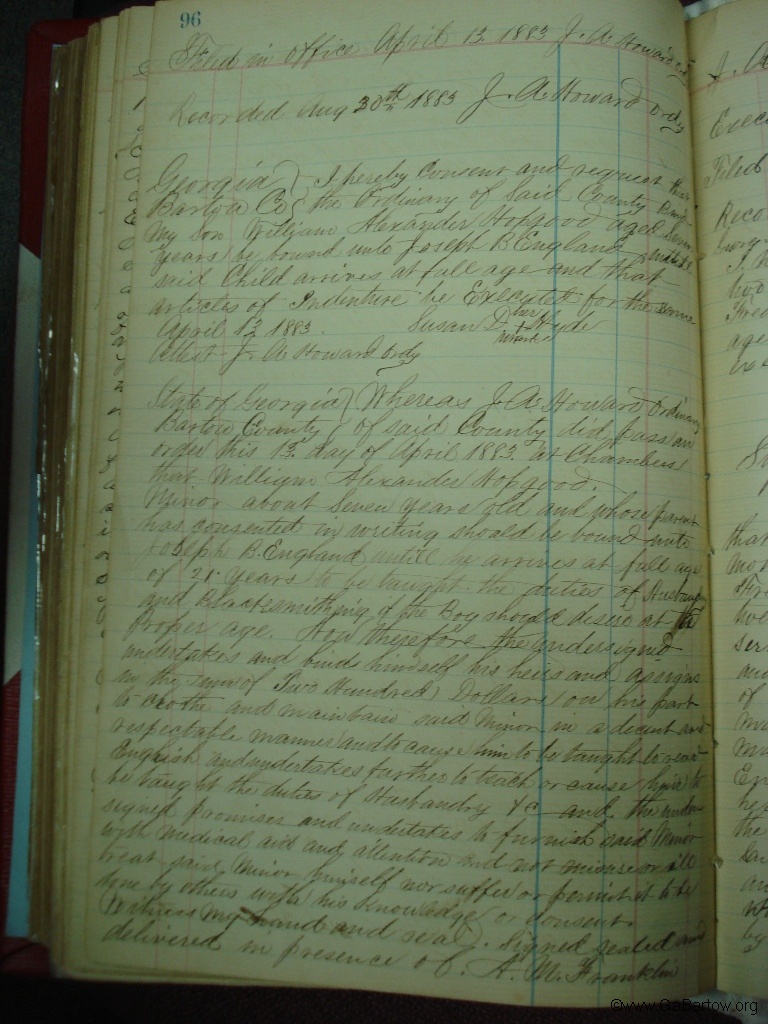 96
Filed in office April 13 1883 J. A. Howard ord
Recorded Aug 30th 1883 J. A. Howard ordy
Georgia } I hereby Consent and request that
Bartow Co } the Ordinary of Said County Bind
My Son William Alexander Hopgood aged Seven
years be bound unto Joseph B. England until
said Child arrives at full age and that
articles of Indenture be Executed for the same
April 13 1883. Susan D her Hyde
mark
Attest J. A. Howard ordy
State of Georgia } Whereas J. A. Howard Ordinary
Bartow County } of said County did pass an
order this 13 day of April 1883 at Chambers
that William Alexander Hopgood.
Minor about Seven years old and whose parent
has consented in writing should be bound unto
Joseph B. England untill he arrives at full age
of 21 years to be taught the duties of Husbandry
and Blacksmithing if the Boy should desire at the
proper age. Now therefore the undersigned
undertakes and binds himself his heirs and assigns
in the sum of Two Hundred Dollars on his part
to clothe and maintain said Minor in a decent and
respectable manner and to cause him to be taught to read
English and undertakes further to teach or cause him to
be taught the duties of Husbandry &c and the under
signed promises and undertakes to furnish said Minor
with medical aid and attention and not misuse or ill
treat said Minor himself nor suffer or permit it to be
done by others with his knowledge or consent.
Witness my hand and seal. Signed sealed and
delivered in presence of. A. M. Franklin
J. A
Exec
Filed
Reco
Georg
age
that
of
the
by
©www.GaBartow.org